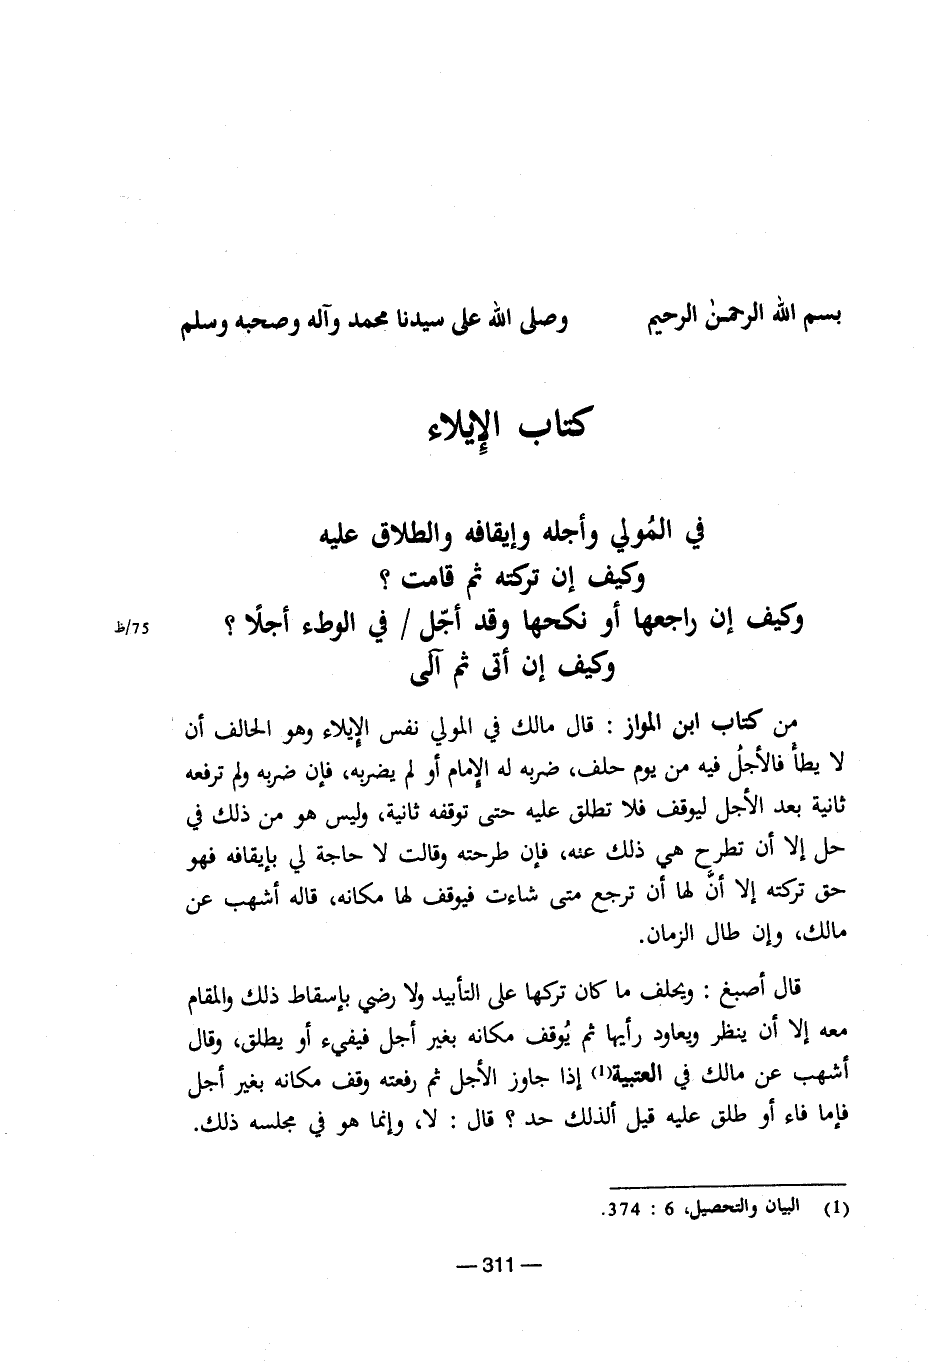 بسم الله الرحمـٰن الرحيم وصلى الله على سيدنا محمد وآله وصحبه وسلم
كتاب الإيلاء
في المُولي وأجله وإيقافه والطلاق عليه
وكيف إن تركته ثم قامت ؟
وكيف إن راجعها أو نكحها وقد أجّل / في الوطء أجلًا ؟ 75/ظ
وكيف إن أتى ثم آلَى
من كتاب ابن المواز : قال مالك في المولي نفس الإيلاء وهو الحالف أن
لا يطأْ فالأجلُ فيه من يوم حلف، ضربه له الإمام أو لم يضربه، فإن ضربه ولم ترفعه
ثانية بعد الأجل ليوقف فلا تطلق عليه حتى توقفه ثانية، وليس هو من ذلك في
حل إلا أن تطرح هي ذلك عنه، فإن طرحته وقالت لا حاجة لي بإيقافه فهو
حق تركته إلا أنَّ لها أن ترجع متى شاءت فيوقف لها مكانه، قاله أشهب عن
مالك، وإن طال الزمان.
قال أصبغ : ويحلف ما كان تركها على التأبيد ولا رضي بإسقاط ذلك والمقام
معه إلا أن ينظر ويعاود رأيها ثم يُوقف مكانه بغير أجل فيفيء أو يطلق، وقال
أشهب عن مالك في العتبية(1) إذا جاوز الأجل ثم رفعته وقف مكانه بغير أجل
فإما فاء أو طلق عليه قيل ألذلك حد ؟ قال : لا، وإنما هو في مجلسه ذلك.
(1) البيان والتحصيل، 6 : 374.
— 311 —